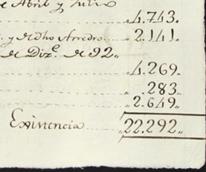 de Abril y Julio
4.743.
y dho Arredro. 2.141.
de Dizᵉ. de 92..
4.269.
283.
2.649.
Existencia 22.292.